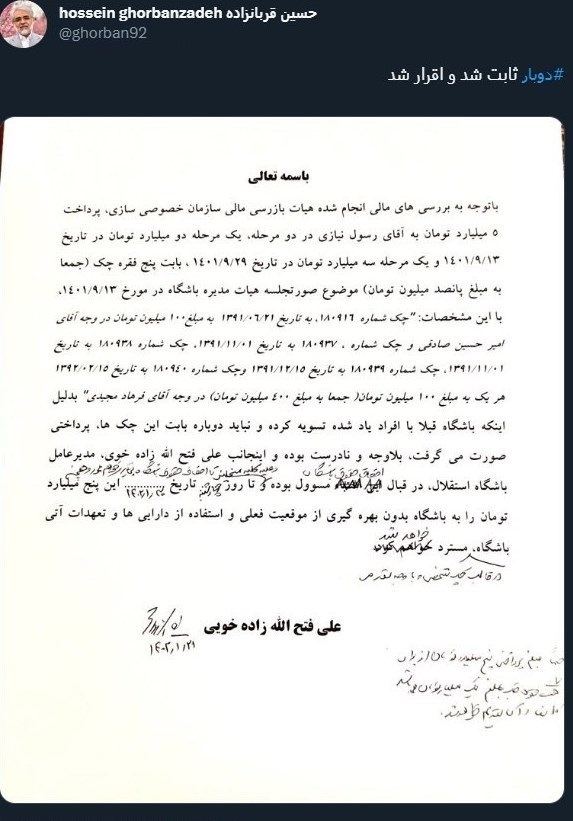 hossein ghorbanzadeh حسین قربانزاده
@ghorban92
#دوبار ثابت شد و اقرار شد
باسمه تعالی
باتوجه به بررسی های مالی انجام شده هیات بازرسی مالی سازمان خصوصی سازی، پرداخت
۵ میلیارد تومان به آقای رسول نیازی در دو مرحله، یک مرحله دو میلیارد تومان در تاریخ
۱۴۰۱/۹/۱۳ و یک مرحله سه میلیارد تومان در تاریخ ۱۴۰۱/۹/۲۹ ، بابت پنج فقره چک (جمعا
به مبلغ پانصد میلیون تومان) موضوع صورتجلسه هیات مدیره باشگاه در مورخ ۱۴۰۱/۹/۱۳،
با این مشخصات: "چک شماره ۱۸۰۹۱۶، به تاریخ ۱۳۹۱/۰۶/۲۱ به مبلغ۱۰۰ میلیون تومان در وجه آقای
امیر حسین صادقی و چک شماره ، ۱۸۰۹۳۷، به تاریخ ۱۳۹۱/۱۱/۰۱، چک شماره ۱۸۰۹۳۸ به تاریخ
۱۳۹۱/۱۱/۰۱، چک شماره ۱۸۰۹۳۹ به تاریخ ۱۳۹۱/۱۲/۱۵ وچک شماره ۱۸۰۹۴۰ به تاریخ ۱۳۹۲/۰۲/۱۵
هر یک به مبلغ ۱۰۰ میلیون تومان( جمعا به مبلغ ۴۰۰ میلیون تومان) در وجه آقای فرهاد مجیدی" بدلیل
اینکه باشگاه قبلا با افراد یاد شده تسویه کرده و نباید دوباره بابت این چک ها، پرداختی
صورت می گرفت، بلاوجه و نادرست بوده و اینجانب علی فتح الله زاده خوی، مدیرعامل
باشگاه استقلال، در قبال مسوول بوده و تا روز تاریخ ۱۴۰۲/۱/۲۷ این پنج میلیارد
تومان را به باشگاه بدون بهره گیری از موقعیت فعلی و استفاده از دارایی ها و تعهدات آتی
خواهد شد
باشگاه، مسترد
در قالب چک شخصی
علی فتح الله زاده خویی
۱۴۰۲/۱/۲۱
مبلغ پنج میلیارد تومان